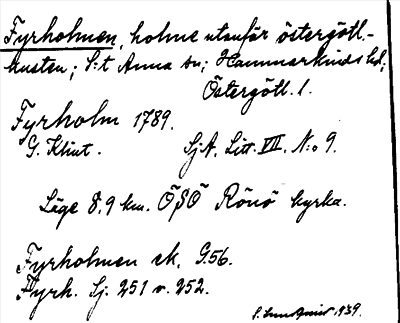 Fyrholmen, holme utanför östergötl.-
kusten; S:t Anna sn; Hammarkinds hd;
Östergötl. l.
Fyrholm 1789.
G. Klint. SjA. Litt. VII. N:o 9.
Läge 8,9 km. ÖSÖ Rönö kyrka.
Fyrholmen ek. G.56.
Fyrh. Sj. 251 o. 252.
1939.